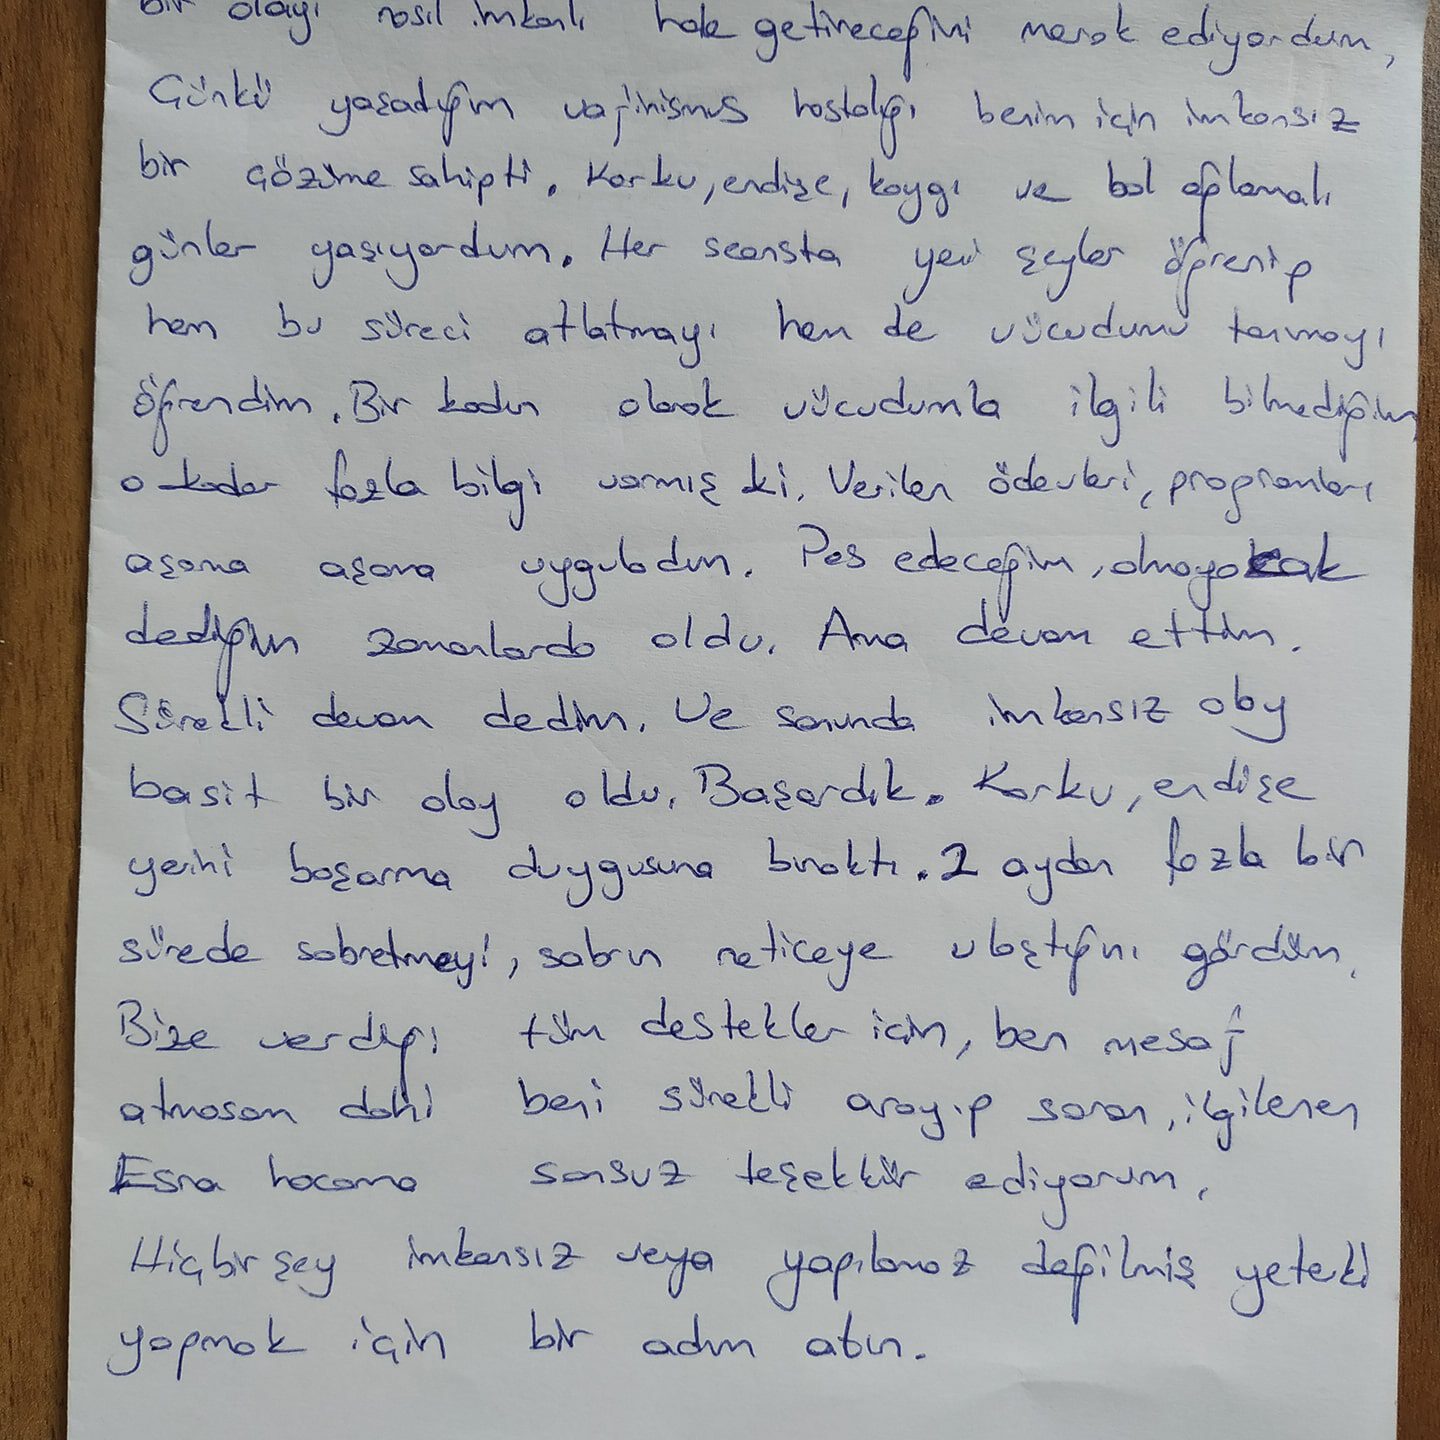 bir olayı nasıl imkanlı hale getireceğini merak ediyordum,
Çünkü yaşadığım vajinismus hastalığı benim için imkansız
bir çözüme sahipti. Korku, endişe, kaygı ve bol ağlamalı
günler yaşıyordum. Her seansta yeni şeyler öğrenip
hem bu süreci atlatmayı hem de vücudumu tanımayı
öğrendim. Bir kadın olarak vücudumla ilgili bilmediğim
o kadar fazla bilgi varmış ki. Verilen ödevleri, programları
aşama aşama uyguladım. Pes edeceğim, olmayacak
dediğim zamanlarda oldu. Ama devam ettim.
Sürekli devam dedim. Ve sonunda imkansız olay
basit bir olay oldu. Başardık. Korku, endişe
yerini başarma duygusuna bıraktı. 2 aydan fazla bir
sürede sabretmeyi, sabrın neticeye ulaştığını gördüm.
Bize verdiği tüm destekler için, ben mesaj
atmasam dahi beni sürekli arayıp soran, ilgilenen
Esra hocama sonsuz teşekkür ediyorum.
Hiçbir şey imkansız veya yapılamaz değilmiş yeterki
yapmak için bir adım atın.